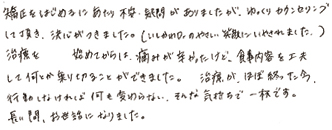 矯正をはじめるにあたり不安・疑問がありましたが、ゆっくりカウンセリング
して頂き、決心がつきました。(いしかわDr.のやさしい笑顔にいやされました。)
治療を始めてからは、痛みが辛かったけど、食事内容を工夫
して何とか乗りきることができました。 治療が、ほぼ終った今、
行動しなければ何も変わらない、そんな気持ちで一杯です。
長い間、お世話になりました。